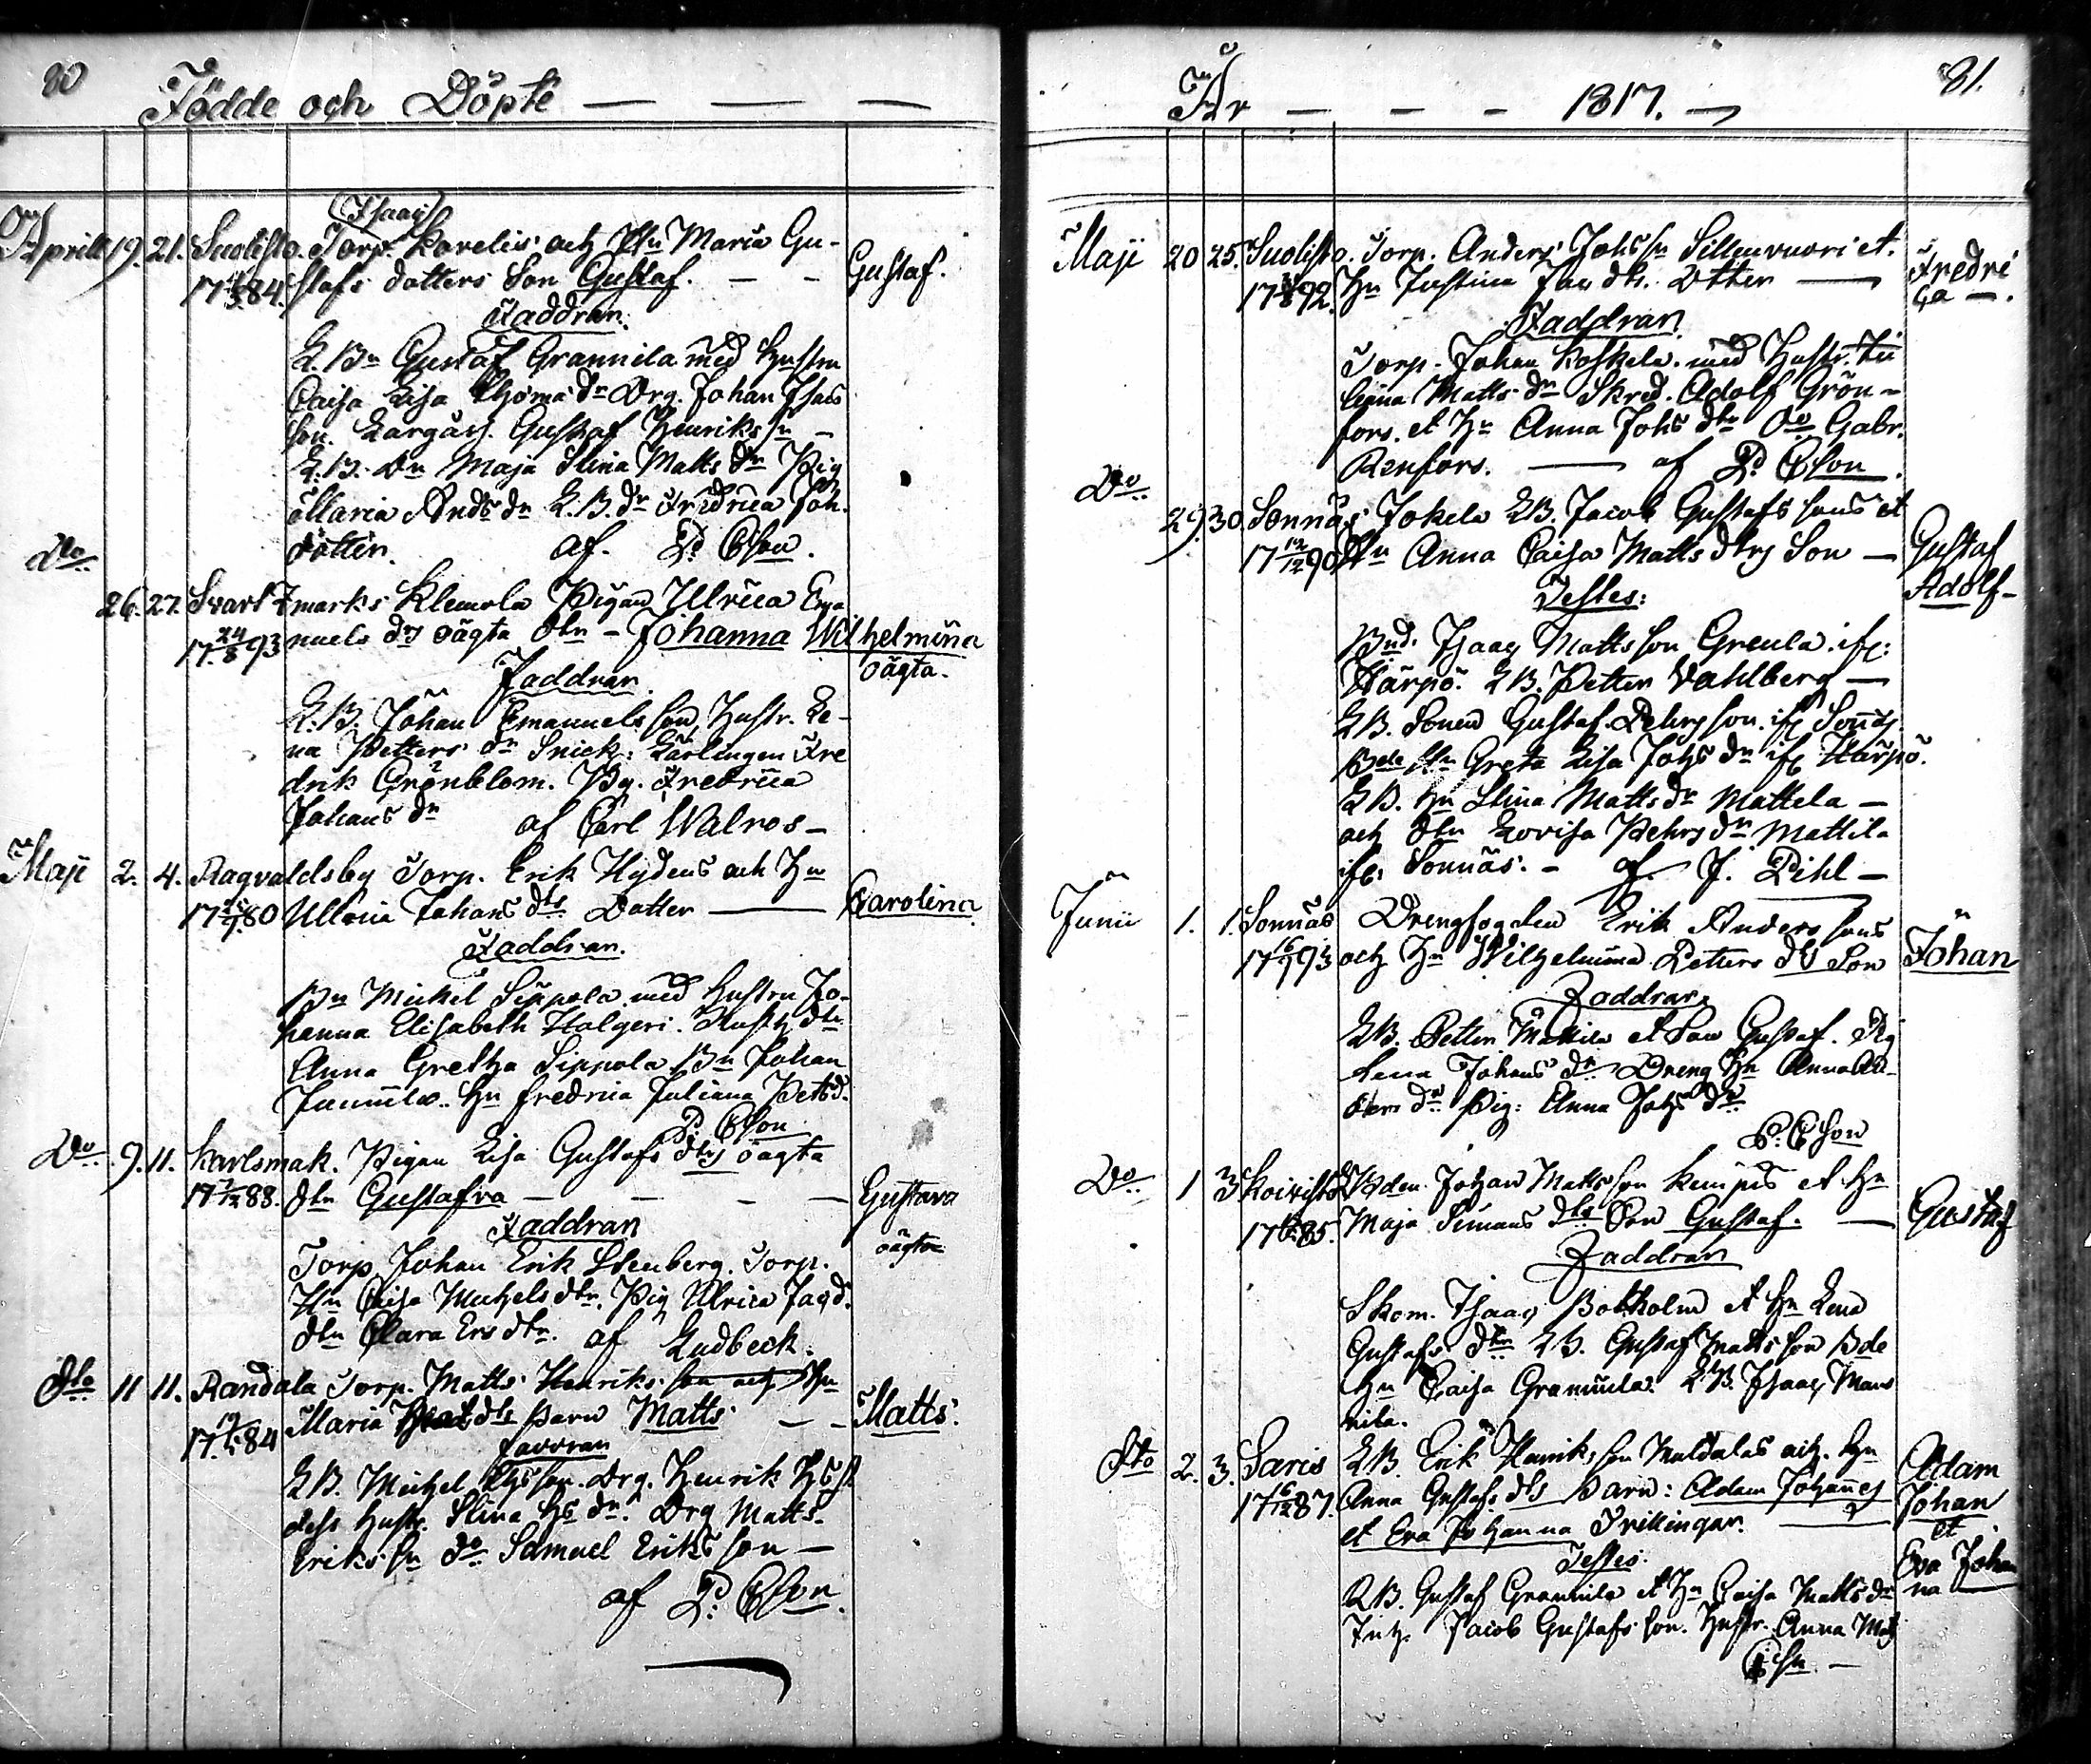 80
Födde och Döpte — — —
(Isaac)
Aprill 19. 21. Suolisto. Torp. Karelis och Hu Maria Gu-
17 84. stafs dotters Son Gustaf. — — Gustaf.
Faddran.
L. Bn Gustaf Grannila med Hustru
Caisa Lisa Thoms dr Drg. Johan Isacs
son. Largårs. Gustaf Henriks sn —
L. B. Dn Maja Stina Matts dr Pig
Maria Ands dr L. B. dr Fridrica Joh.
dotter. af. P. Ckon.
Dto
26. 27. Svartsmarks Klemola Pigan Ulrica Ema
17 24/8 93 nuels drs oägta dtr – Johanna Wilhelmina
oägta.
Faddran.
L. B. Johan Emanuels son, Hustr. Le-
na Petters dr Snick: Lärlingen Fre
drik Grönblom. Pg. Fredrica
Johans dr af Carl Walros —
Maji 2. 4. Ragvaldsby Torp. Erik Hydens och Hu
17 80 Ullrica Johans dtr Dotter — Carolina
Faddran.
Bn Mickel Sippola med Hustru Jo-
hanna Elisabeth Halgeri.
Anna Gretha Sippola Bn Johan
Hu Fredrica Juliana Pets d.
P. Ckon
Do 9. 11. Karlsmak. Pigan Lisa Gustafs dtrs oägta
17 88. dtr Gustafva — — — Gustava
oägta
Faddran
Torp Johan Erik Stenberg. Torp.
Hu Caisa Michels dtr. Pig Ulrica Jac d.
dtr Clara Ers dtr. af Ludbeck.
dto 11 11. Randala Torp. Matts Henriks son och Hu
17 84 Maria dtr barn Matts — – Matts.
Faddran
L B. Michel son. Drg. Henrik
dess Hustr. Stina dr. Drg Matts
Eriks sn do Samuel Eriks son —
af P: Ckon.
År — – – – 1817. — 81.
Maji 20 25. Suolisto. Torp. Anders Johs sn Sillenvuori et.
17 92. Hu Justina Jac dtr. Dtter — Fredri
ca —.
Faddran
Torp. Johan Koskela. med Hustr.
Matts dr Skred. Adolf Grön-
fors. et Hu Anna Johs dtr Do Gabr.
Renfors. — af P. Ckon.
Do
29. 30. Sonnäs Jokela LB. Jacob Gustafs sons et
17 12/12 90 Hu Anna Caisa Matts dtrs Son — Gustaf
Adolf-
Testes:
Bnd. Isaac Matts son Greula. ifr:
Härpö. LB. Petter Dahlberg —
LB. Sonen Gustaf Pehrs son. ifr Sonnäs
Bde Hu Greta Lisa Johs dr ifr Härpö.
LB. Hu Stina Matts dr Mattela —
och dtr Lovisa Pehrs dr Mattila
ifr. Sonnäs. – af. J. Pihl —
Junii 1. 1. Sonnäs Drengfogden Erik Anders sons
17 16/1 93 och Hu Wilhelmina Petters dtr Son Johan
Faddrar
LB. Petter Mattila et Son Gustaf. Pig
Lena Johans dr Dreng Hu Anna An-
ders dr Pig: Anna Johs dr.
P. Ckon
Do 1 3 Koivisto Bden Johan Matts son Kempis et Hu
17 85. Maja Simons dtr Son Gustaf. — Gustaf
Faddran
Skom. Isaac Boxholm et Hu Lena
Gustafs dtr LB. Gustaf Matts son Bde
Hu Caisa Grannila. LB. Isaac Man
nila.
dto 2. 3. Saris LB. Erik Henriks son Maldalas och. Hu
17 16/12 87. Anna Gustafs dtrs Barn: Adam Johannes
et Eva Johanna Trillingar. — Adam
Johan
et
Eva Johan
na
Testes.
LB. Gustaf Grannila et Hu Caisa Matts dr
Jacob Gustafs son. Hustr. Anna